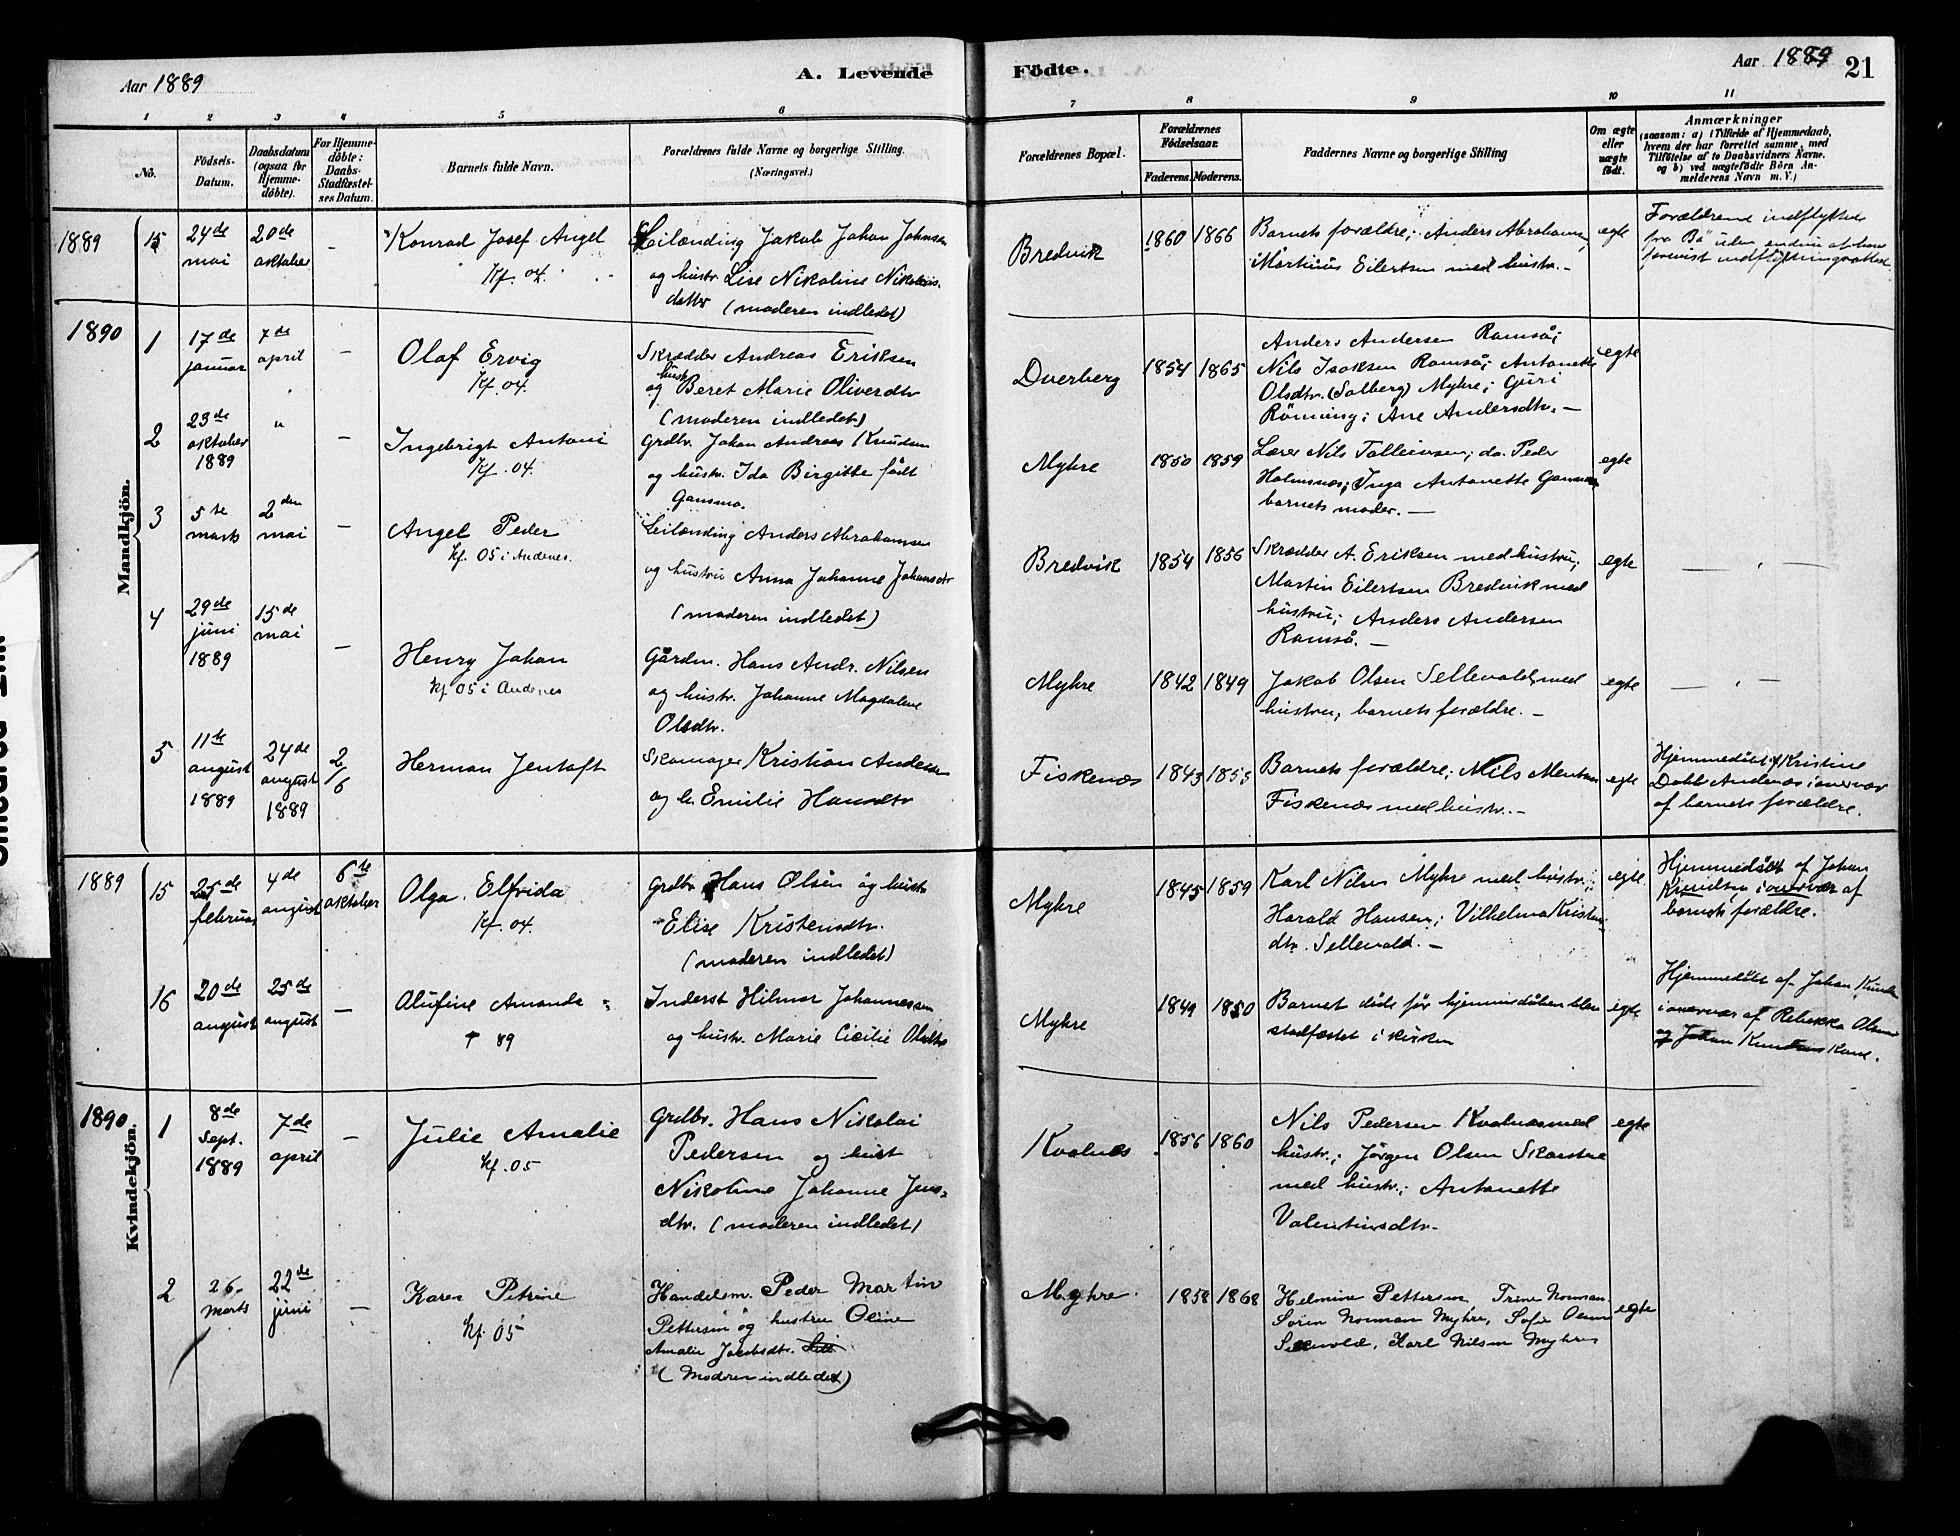 Aar 1889
A. Levende
Födte.
Aar 1889
21
1
2
3
4
5
6
7
8
9
10
11
No.
Födsels-
Datum.
Daabsdatum
(ogsaa for
Hjemme-
döbte).
For Hjemme-
döbte:
Daabs-
Stadfæstel-
ses Datum.
Barnets fulde Navn.
Forældrenes fulde Navne og borgerlige Stilling.
(Næringsvei.)
Forældrenes Bopæl.
Forældrenes
Födselsaar.
Faderens.
Moderens.
Faddernes Navne og borgerlige Stilling
Om ægte
eller
uægte
födt.
Anmærkninger
(saasom: a) i Tilfælde af Hjemmedaab,
hvem der har forrettet samme, med
Tilföielse af to Daabsvidners Navne.
og b) ved uægtefödte Börn An-
melderens Navn m. V.)
Mandkjön.
1889
15
24de
mai
20de
oktober
–
Konrad Josef Angel
Kf. 04.
Leilænding Jakob Johan Johnsen
og hustr. Lise Nikoline Nikolais-
datter (moderen indledet)
Bredvik
1860
1866
Barnets forældre; Anders Abrahamsen
Martinus Eilertsen med hustr. –
egte
Forældrene indflyttet
fra Bö uden endnu at have
forevist indflytningsattest
1890
1
17de
januar
7de
april
–
Olaf Ervig
Kf. 04.
Skrædder Andreas Eriksen
hustr.
og Beret Marie Oliverdtr
(moderen indledet)
Dverberg
1854
1865
Anders Andersen Ramså;
Nils Isaksen Ramså; Antonette
Olsdtr. (Solberg) Myhre; Guri
Rönning; Ane Andersdtr. –
egte
2
23de
oktober
1889
"
–
Ingebrigt Antoni
Kf. 04.
Grdbr. Johan Andreas Knudsen
og hustr. Ida Birgitte født
Gansmo.
Myhre
1850
1859
Lærer Nils Tolleivsen; do. Peder
Holmsnes; Inga Antonette Gansmo
barnets moder. –
egte
3
5te
marts
2den
mai
–
Angel Peder
Kf. 05 i Andenes.
Leilænding Anders Abrahamsen
og hustru Anna Johanne Johansdtr
(moderen indledet)
Bredvik
1854
1856
Skrædder A. Eriksen med hustru;
Martin Eilertsen Bredvik med
hustru; Anders Andersen
Ramså. –
egte
4
29de
juni
1889
15de
mai
–
Henry Johan
Kf 05 i Andenes
Gårdm. Hans Andr. Nilsen
og hustr. Johanne Magdalene
Olsdtr.
Myhre
1842
1849
Jakob Olsen Sellevold med
hustru, barnets forældre. –
egte
5
11te
august
1889
24de
august
1889
2/6
Herman Jentoft
Skomager Kristian Andersen
og h. Emilie Hansdtr
Fiskenæs
1843
1855
Barnets forældre; Nils Mentsen
Fiskenæs med hustr. –
egte
Hjemmedöbt af Kristine
Dahl Andenes i overvær
af barnets forældre.
Kvindekjön.
1889
15
25de
februar
4de
august
6te
oktober
Olga Elfrida
Kf. 04.
Grdbr. Hans Olsen og hustr
Elise Kristensdtr.
(moderen indledet)
Myhre
1845
1859
Karl Nilsen Myhre med hustr.;
Harald Hansen; Vilhelma Kristens-
dtr. Sellevold. –
egte
Hjemmedöbt af Johan
Knudsen i overvær af
barnets forældre.
16
20de
august
25de
august
–
Olufine Amanda
† 89
Inderst Hilmar Johannessen
og hustr. Marie Cicilie Olsdtr
Myhre
1849
1850
Barnet døde før hjemmedåben blev
stadfæstet i kirken
egte
Hjemmedöbt af Johan Knudsen
i overvær af Rebekka Olsen
og Johan Knudsens Kone.
1890
1
8de
Sept.
1889
7de
april
–
Julie Amalie
Kf. 05
Grdbr. Hans Nikolai
Pedersen og hust
Nikoline Johanne Jens-
dtr. (moderen indledet)
Kvalnes
1856
1860
Nils Pedersen Kvalnes med
hustr.; Jørgen Olsen Skarstein
med hustr.; Antonette
Valentinsdtr.
egte
2
26.
Marts
22de
juni
–
Karen Petrine
Kf. 05
Handelsm. Peder Martin
Pettersen og hustru Oline
Amalie Jacobsdtr.
(Moderen indledet)
Myhre.
1858
1868
Helmine Pettersen, Trine Norman.
Sören Norman Myhre, Sofie Olsen
Sellevold, Karl Nilsen Myhre
egte